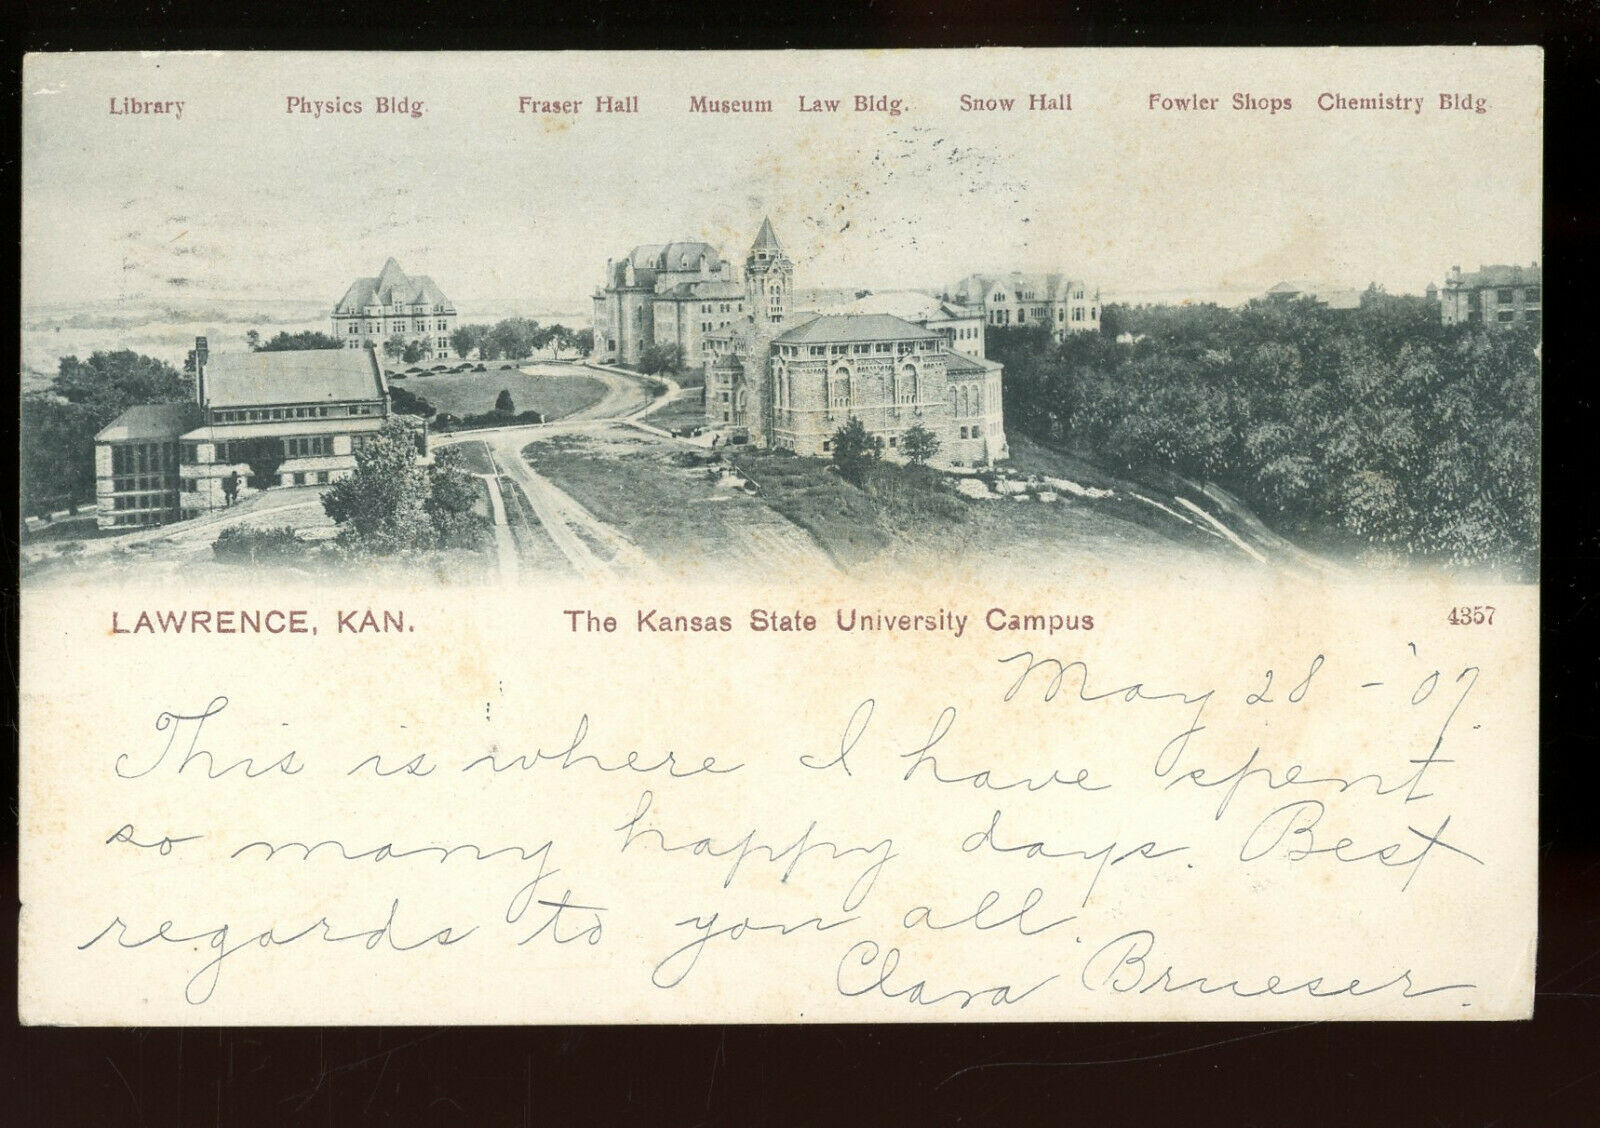 Library Physics Bldg. Fraser Hall Museum Law Bldg. Snow Hall Fowler Shops Chemistry Bldg.
LAWRENCE, KAN. The Kansas State University Campus 4357
May 28 - '07.
This is where I have spent
so many happy days. Best
regards to you all.
Clara Brueser.